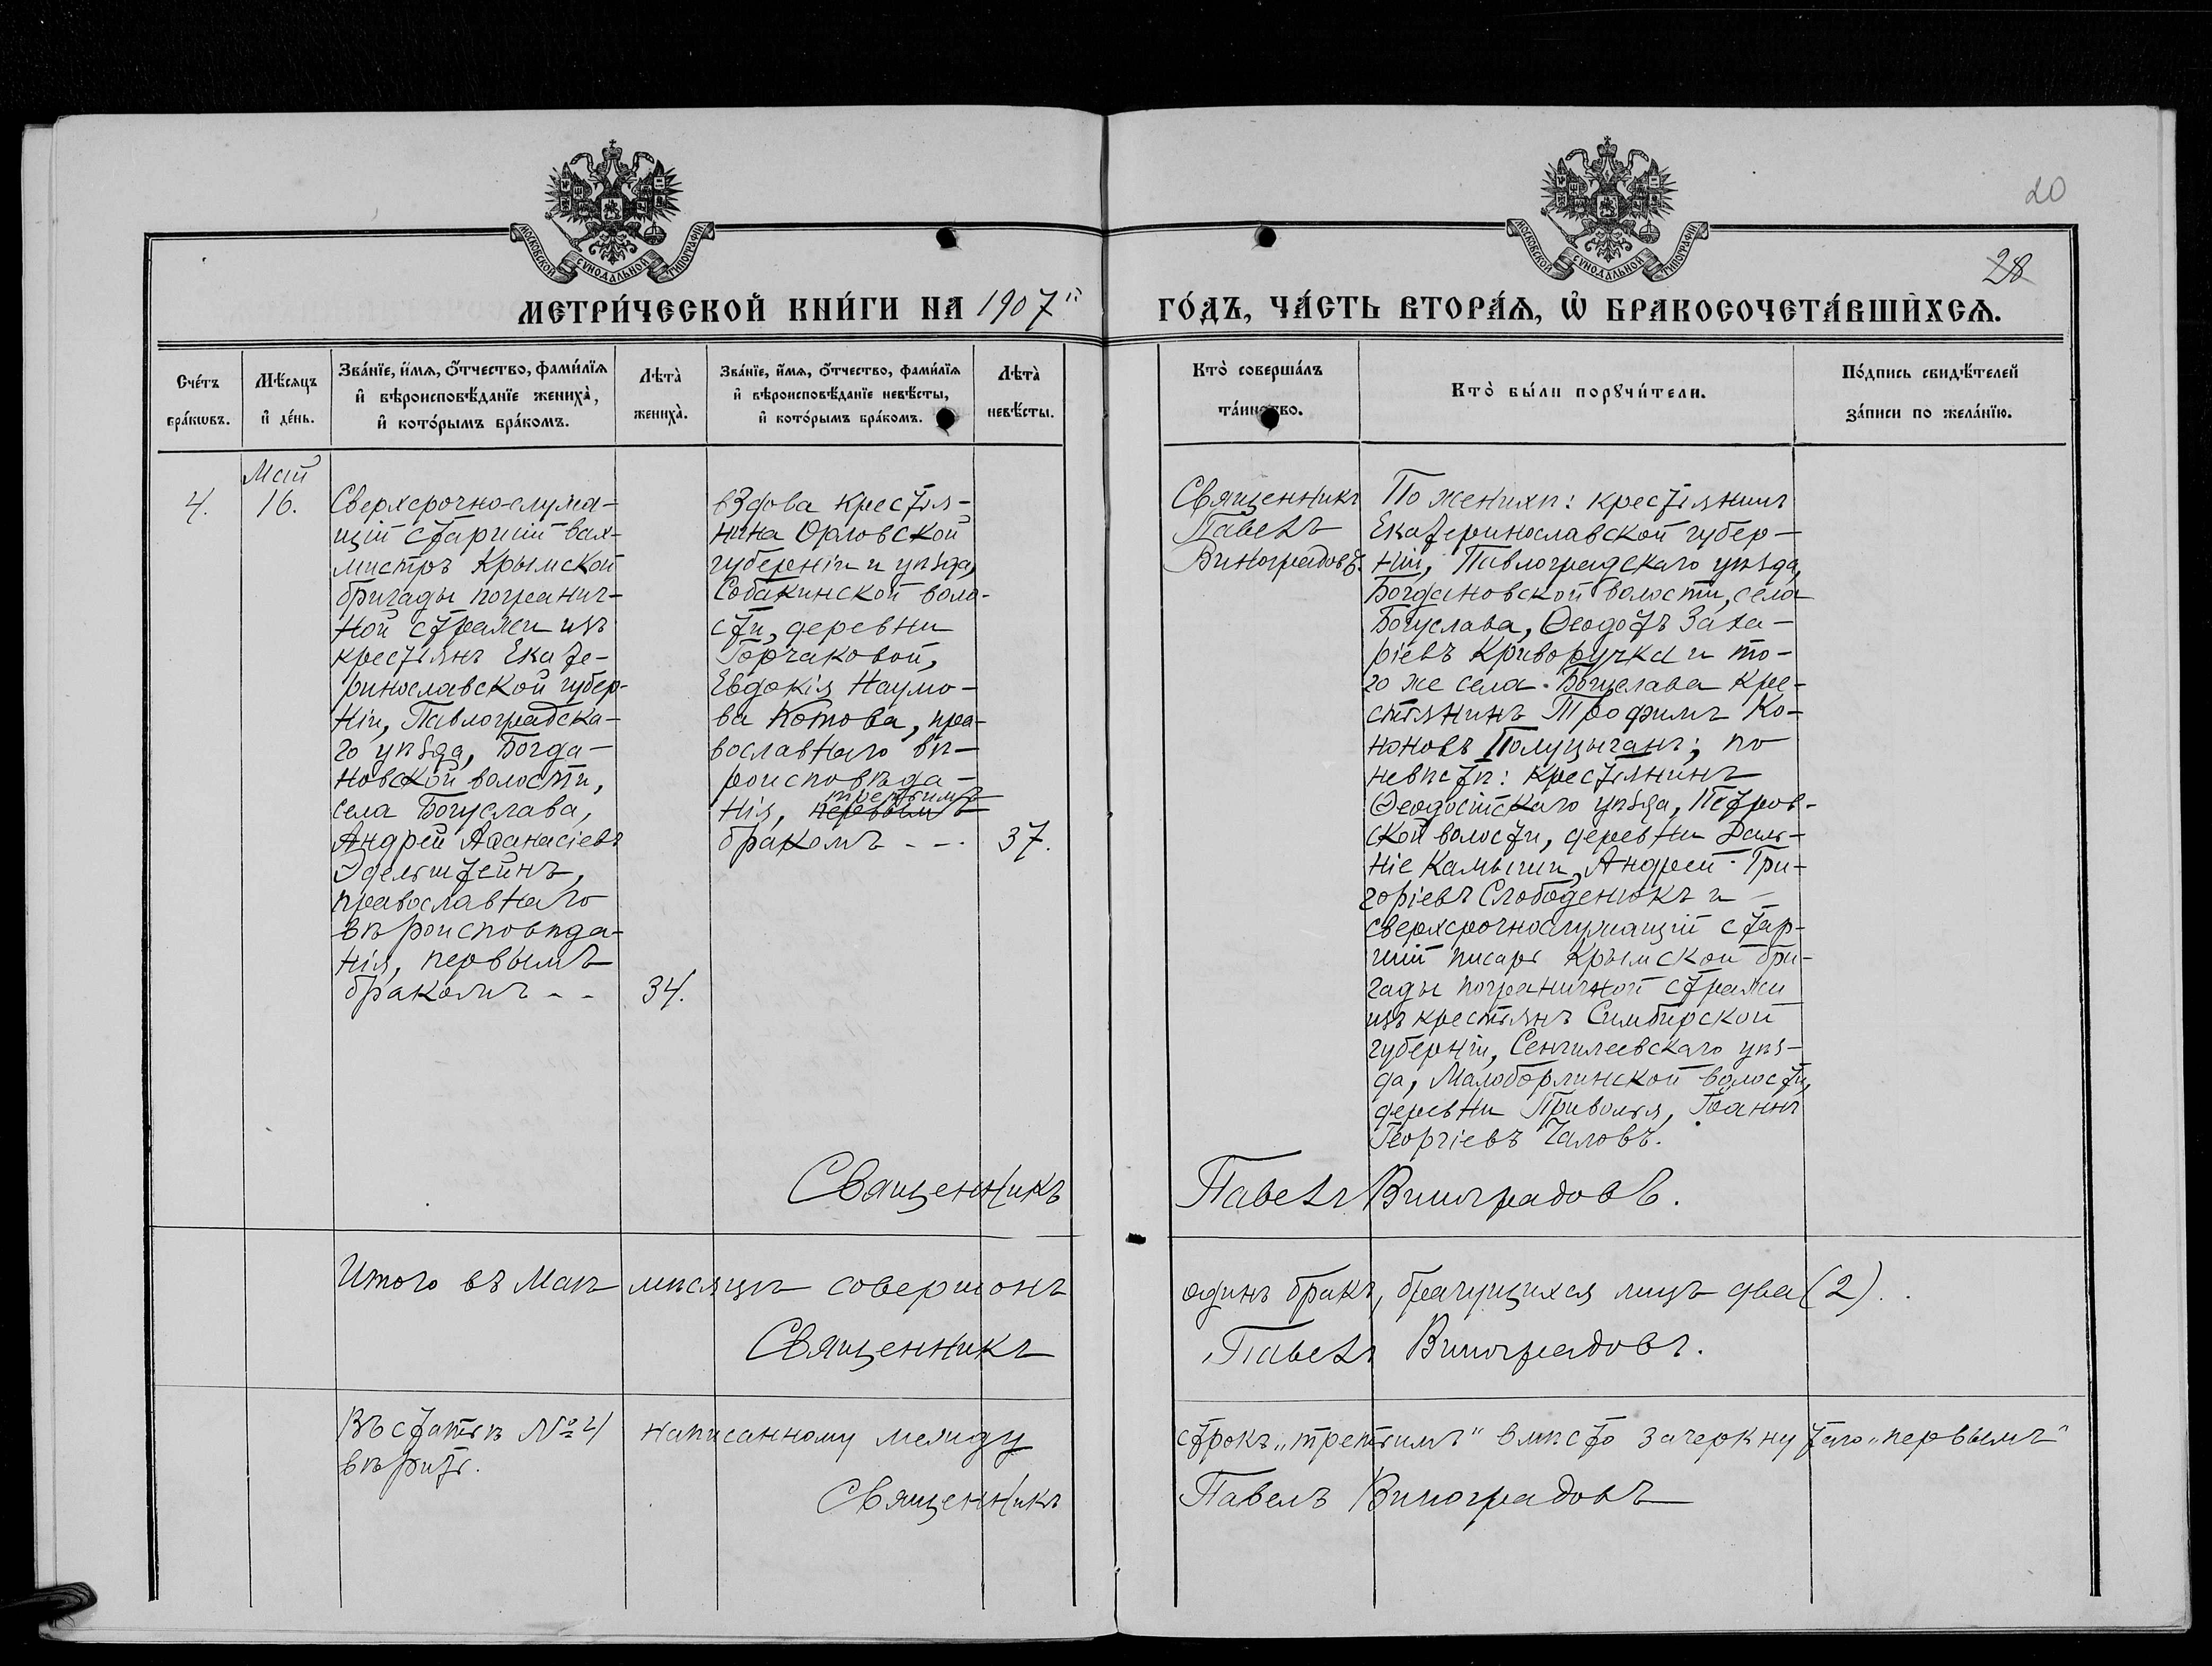 20
28
МОСКОВСКОЙ СѴНОДАЛЬНОЙ ТИПОГРАФІИ
МОСКОВСКОЙ СѴНОДАЛЬНОЙ ТИПОГРАФІИ
МЕТРИ́ЧЕСКОЙ КНИ́ГИ НА 1907й ГО́ДЪ, ЧА́СТЬ ВТОРА́Я, Ѡ҆ БРАКОСОЧЕТА́ВШИХСЯ.
Сче́тъ
бра́кѡвъ.
Мѣ́сяцъ
и҆ де́нь.
Зва́нїе, и҆́мя, ѻ҆́тчество, фами́лїя
и҆ вѣроисповѣ́данїе жениха̀,
и҆ кото́рымъ бра́комъ.
Лѣта̀
жениха̀.
Зва́нїе, и҆́мя, ѻ҆́тчество, фами́лїя
и҆ вѣроисповѣ́данїе невѣ́сты,
и҆ кото́рымъ бра́комъ.
Лѣта̀
невѣ́сты.
Кто̀ соверша́лъ
та́инство.
Кто̀ бы́ли порꙋчи́тели.
По́дпись свидѣ́телей
за́писи по жела́нїю.
4.
Май
16.
Сверхсрочно-служа-
щій старшій вах-
мистръ Крымской
бригады погранич-
ной стражи изъ
крестьянъ Екате-
ринославской губер-
ніи, Павлоградска-
го уѣзда, Богда-
новской волости,
села Богуслава,
Андрей Аѳанасіевъ
Эдельштейнъ,
православнаго
вѣроисповѣда-
нія, первымъ
бракомъ - -
34.
вдова крестья-
нина Орловской
губерніи и уѣзда,
Собакинской воло-
сти, деревни
Горчаковой,
Евдокія Наумо-
ва Котова, пра-
вославнаго вѣ-
роисповѣда-
третьимъ
нія, первымъ
бракомъ - - -
37.
Священникъ
Павелъ
Виноградовъ.
По женихѣ: крестьянинъ
Екатеринославской губер-
ніи, Павлоградскаго уѣзда,
Богдановской волости, села
Богуслава, Ѳеодотъ Заха-
ріевъ Криворучка и то-
го же села Богуслава кре-
стьянинъ Трофимъ Ко-
ноновъ Полуцыганъ; по
невѣстѣ: крестьянинъ
Ѳеодосійскаго уѣзда, Петров-
ской волости, деревни Даль-
ніе Камыши, Андрей Гри-
горіевъ Слободенюкъ и
сверхсрочнослужащій стар-
шій писарь Крымской бри-
гады пограничной стражи
изъ крестьянъ Симбирской
губерніи, Сенгилеевскаго уѣз-
да, Малоборлинской волости,
деревни Приволья, Іоаннъ
Георгіевъ Чаловъ.
Священникъ Павелъ Виноградовъ.
Итого въ Маѣ мѣсяцѣ совершонъ одинъ бракъ, брачущихся лицъ два (2).
Священникъ Павелъ Виноградовъ.
Въ статьѣ № 4 написанному между строкъ „третьимъ" вмѣсто зачеркнутаго „первымъ"
вѣрить.
Священникъ Павелъ Виноградовъ